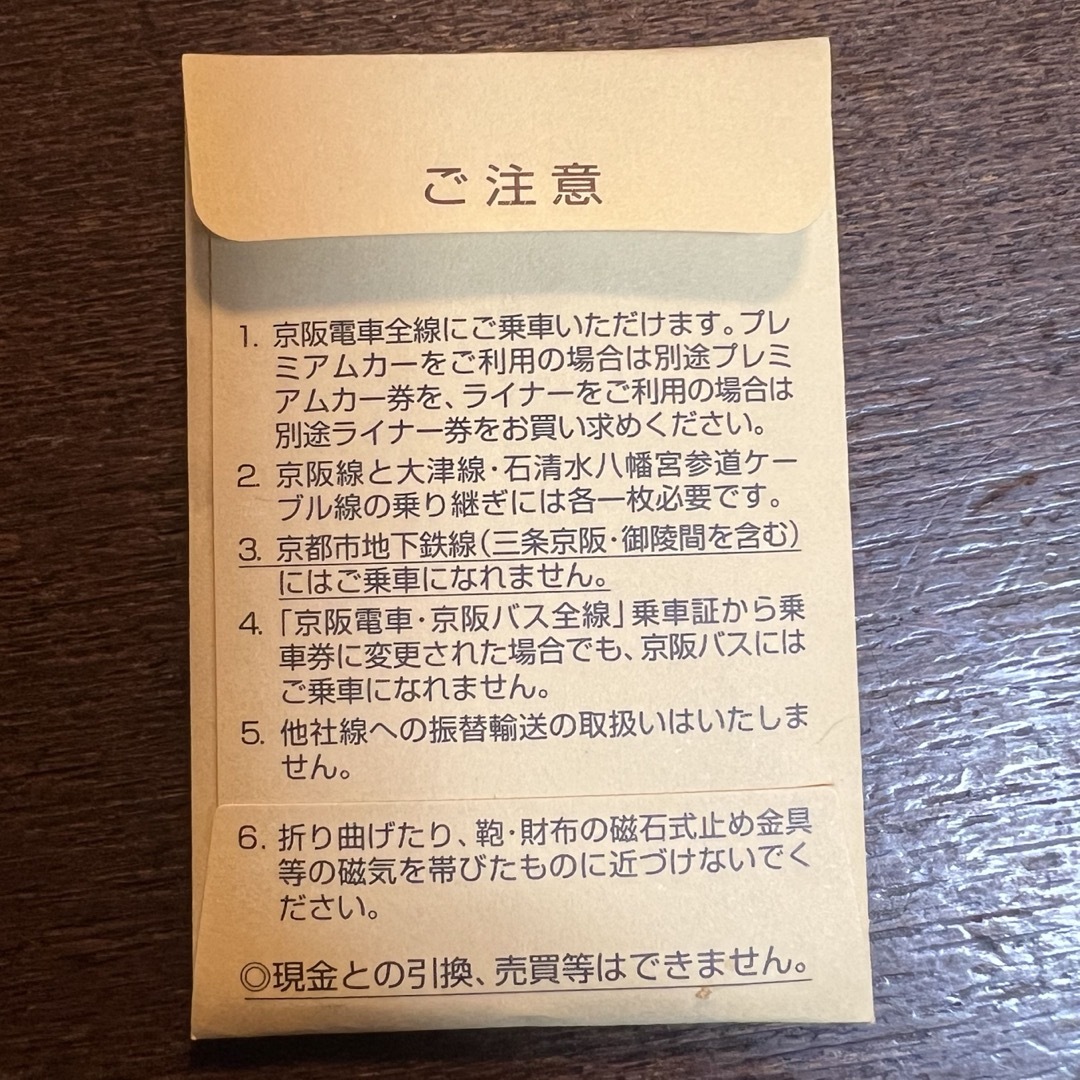 ご注意
1. 京阪電車全線にご乗車いただけます。プレ
ミアムカーをご利用の場合は別途プレミ
アムカー券を、ライナーをご利用の場合は
別途ライナー券をお買い求めください。
2. 京阪線と大津線・石清水八幡宮参道ケー
ブル線の乗り継ぎには各一枚必要です。
3. 京都市地下鉄線(三条京阪・御陵間を含む)
にはご乗車になれません。
4. 「京阪電車・京阪バス全線」乗車証から乗
車券に変更された場合でも、京阪バスには
ご乗車になれません。
5. 他社線への振替輸送の取扱いはいたしま
せん。
6. 折り曲げたり、鞄・財布の磁石式止め金具
等の磁気を帯びたものに近づけないでく
ださい。
◎現金との引換、売買等はできません。